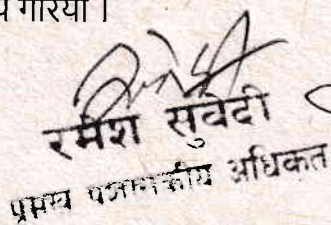 गरियो ।
रमेश सुवेदी
प्रमुख प्रशासकीय अधिकृत